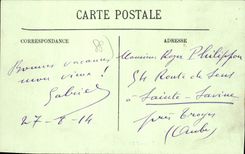 CARTE POSTALE
CORRESPONDANCE
ADRESSE
Bonnes vacances
mon vieux !
Gabriel
27-8-14
Monsieur Roger Philippon
54 Route de Sens
à Sainte-Savine
près Troyes
(Aube)